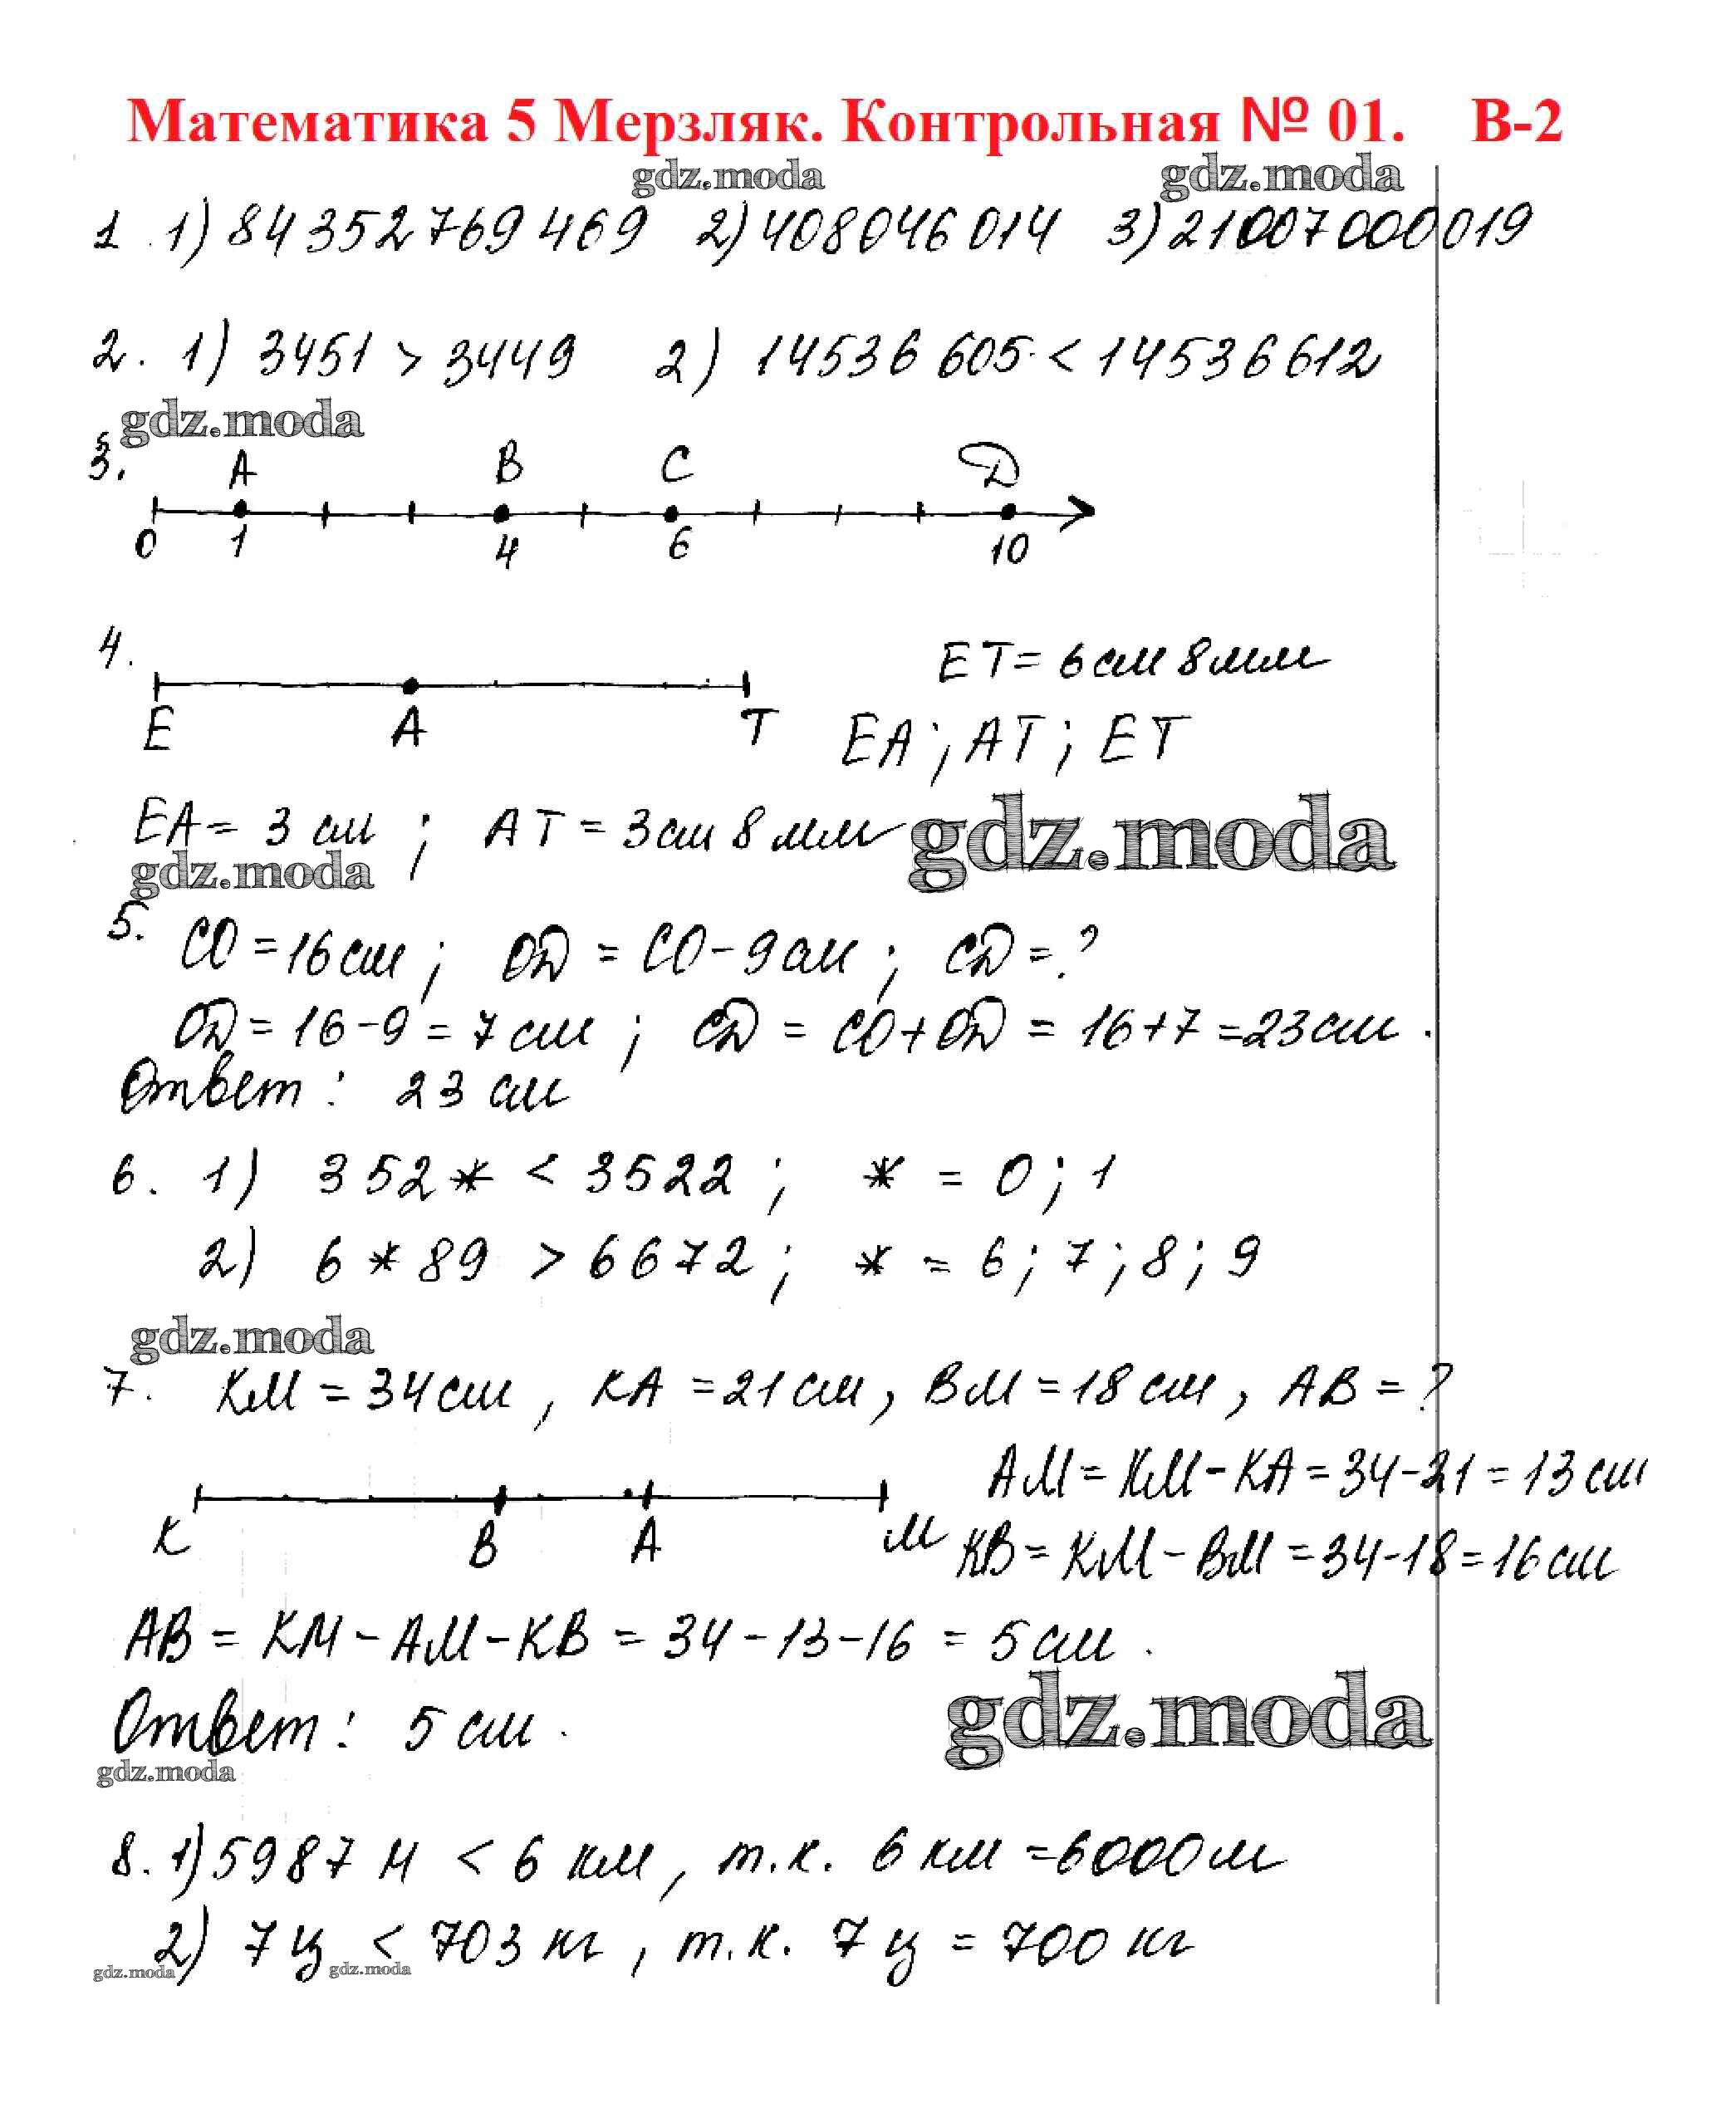 Математика 5 Мерзляк. Контрольная № 01. В-2
gdz.moda gdz.moda
1. 1) 84 352 769 469 2) 408 046 014 3) 21 007 000 019
2. 1) 3451 > 3449 2) 14536 605 < 14536 612
gdz.moda
3. A B C D
0 1 4 6 10
4. ET = 6 см 8 мм
E A T EA; AT; ET
EA = 3 см; AT = 3 см 8 мм gdz.moda
gdz.moda
5. CO = 16 см; OD = CO - 9 см; CD = ?
OD = 16 - 9 = 7 см; CD = CO + OD = 16 + 7 = 23 см.
Ответ: 23 см
6. 1) 352* < 3522; * = 0; 1
2) 6*89 > 6672; * = 6; 7; 8; 9
gdz.moda
7. KM = 34 см, KA = 21 см, BM = 18 см, AB = ?
AM = KM - KA = 34 - 21 = 13 см
K B A M KB = KM - BM = 34 - 18 = 16 см
AB = KM - AM - KB = 34 - 13 - 16 = 5 см.
Ответ: 5 см. gdz.moda
gdz.moda
8. 1) 5987 м < 6 км, т.к. 6 км = 6000 м
2) 7 ц < 703 кг, т.к. 7 ц = 700 кг
gdz.moda gdz.moda